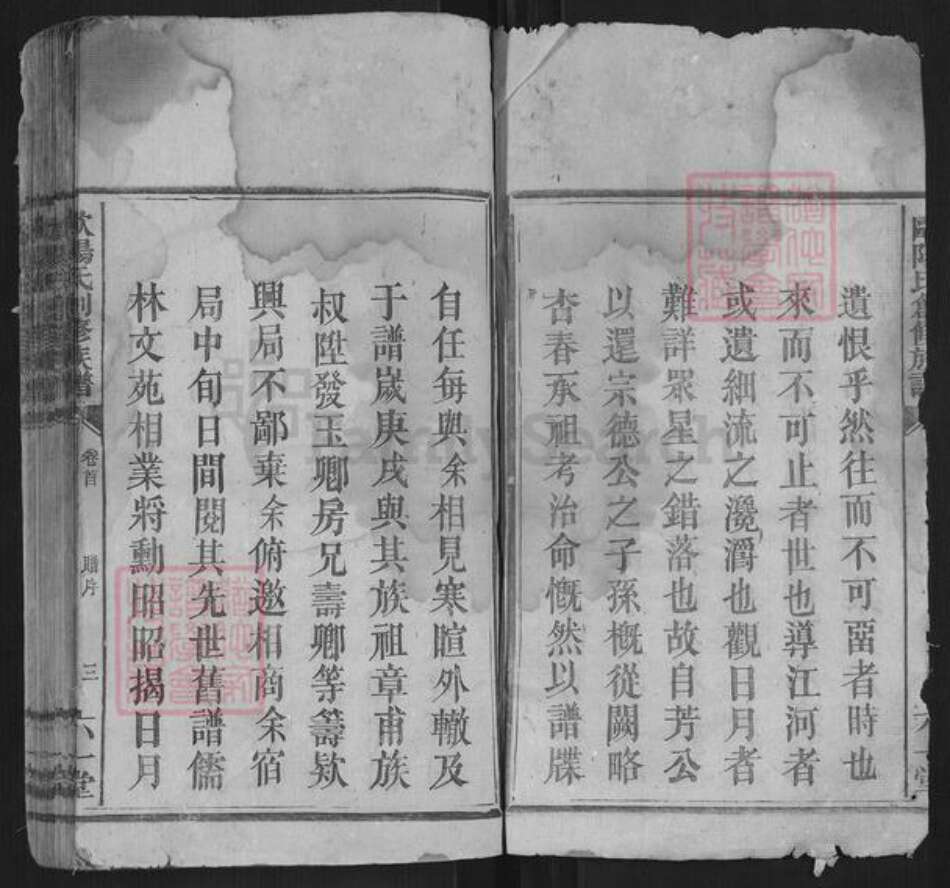 遺恨乎然往而不可畱者時也
來而不可止者世也導江河者
或遺細流之㶑灂也觀日月者
難詳眾星之錯落也故自芳公
以還宗德公之子孫概從闕略
杏春承祖考治命慨然以譜牒
自任每與余相見寒暄外轍及
于譜歲庚戌與其族祖章甫族
叔陞發玉卿房兄壽卿等籌欵
興局不鄙棄余俯邀相商余宿
局中旬日間閱其先世舊譜儒
林文苑相業將勳昭昭揭日月
歐陽氏創修族譜
卷首
三
六一堂
FamilySearch